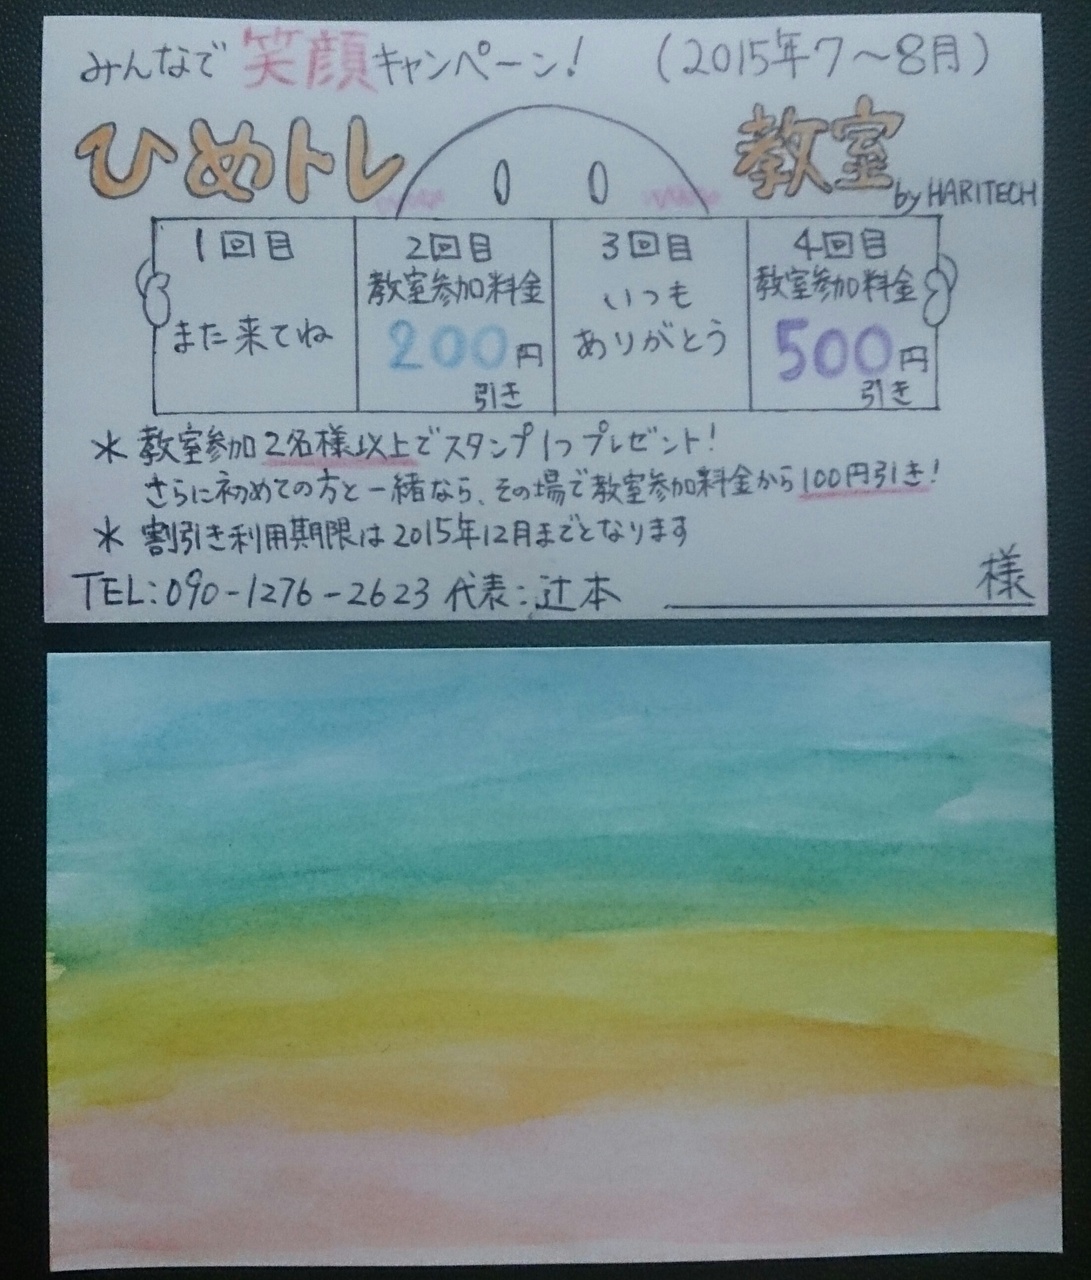 みんなで笑顔キャンペーン! (2015年7〜8月)
ひめトレ 教室 by HARITECH
1回目
また来てね
2回目
教室参加料金
200円
引き
3回目
いつも
ありがとう
4回目
教室参加料金
500円
引き
* 教室参加2名様以上でスタンプ1つプレゼント!
さらに初めての方と一緒なら、その場で教室参加料金から100円引き!
* 割引き利用期限は2015年12月までとなります
TEL:090-1276-2623 代表:辻本 様